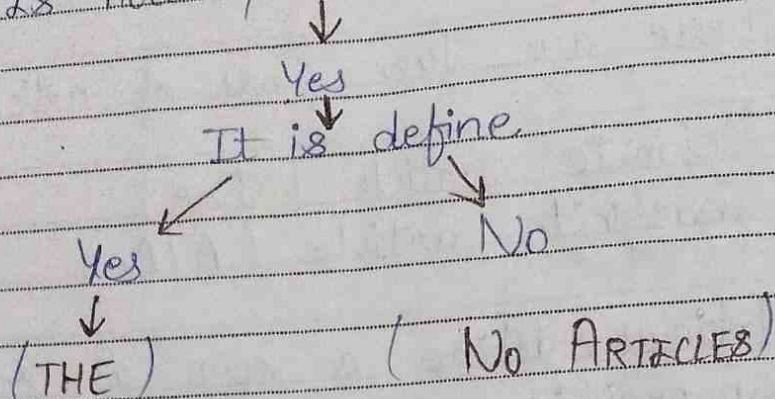 Yes
It is define
Yes No
(THE) (No ARTICLES)